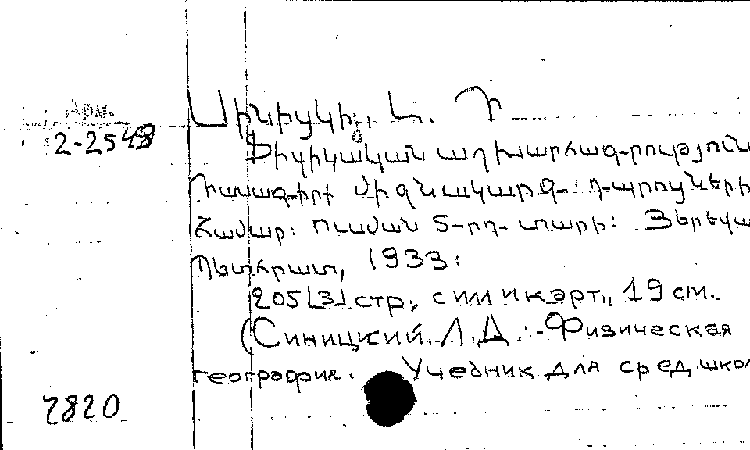 Арм.
2-2548
Սինիցկի, Լ. Դ
Ֆիզիկական աշխարհագրություն
Դասագիրք միջնակարգ դպրոցների
համար: Ուսման 5-րդ տարի: Յերեվա
Պետհրատ, 1933:
205 [3] стр, с илл и карт., 19 см.
(Синицкий, Л. Д. Физическая
география. Учебник для сред. шко
2820